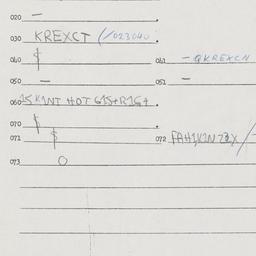 020 —
030 KREXCT (/023040
040 $ 041 - QKREXCN
050 — 051 —
060 15 KINT HOT 615+R16+
070 $
071 $ 072 FAHIKIN73X/
073 O